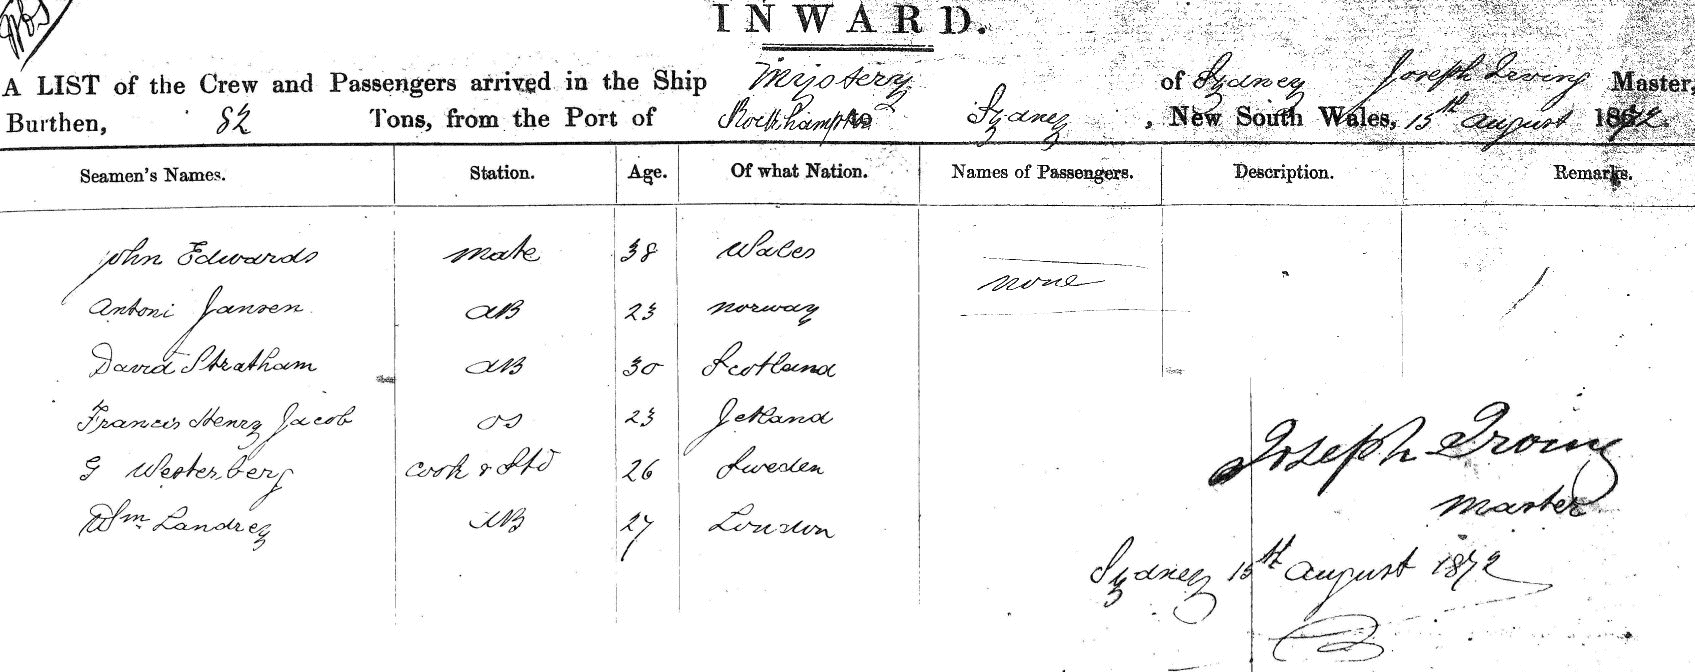 INWARD.
A LIST of the Crew and Passengers arrived in the Ship Mystery of Sydney Joseph Irving Master,
Burthen, 82 Tons, from the Port of Rockhampton to Sydney, New South Wales, 15th august 1872.
Seamen's Names. Station. Age. Of what Nation. Names of Passengers. Description. Remarks.
John Edwards mate 38 Wales
none
Antoni Jansen AB 23 Norway
David Stratham AB 30 Scotland
Francis Henry Jacob OS 23
G Westerberg cook & Std 26 Sweden
Wm Landrey AB 27 London
Joseph Irving
master
Sydney 15th august 1872